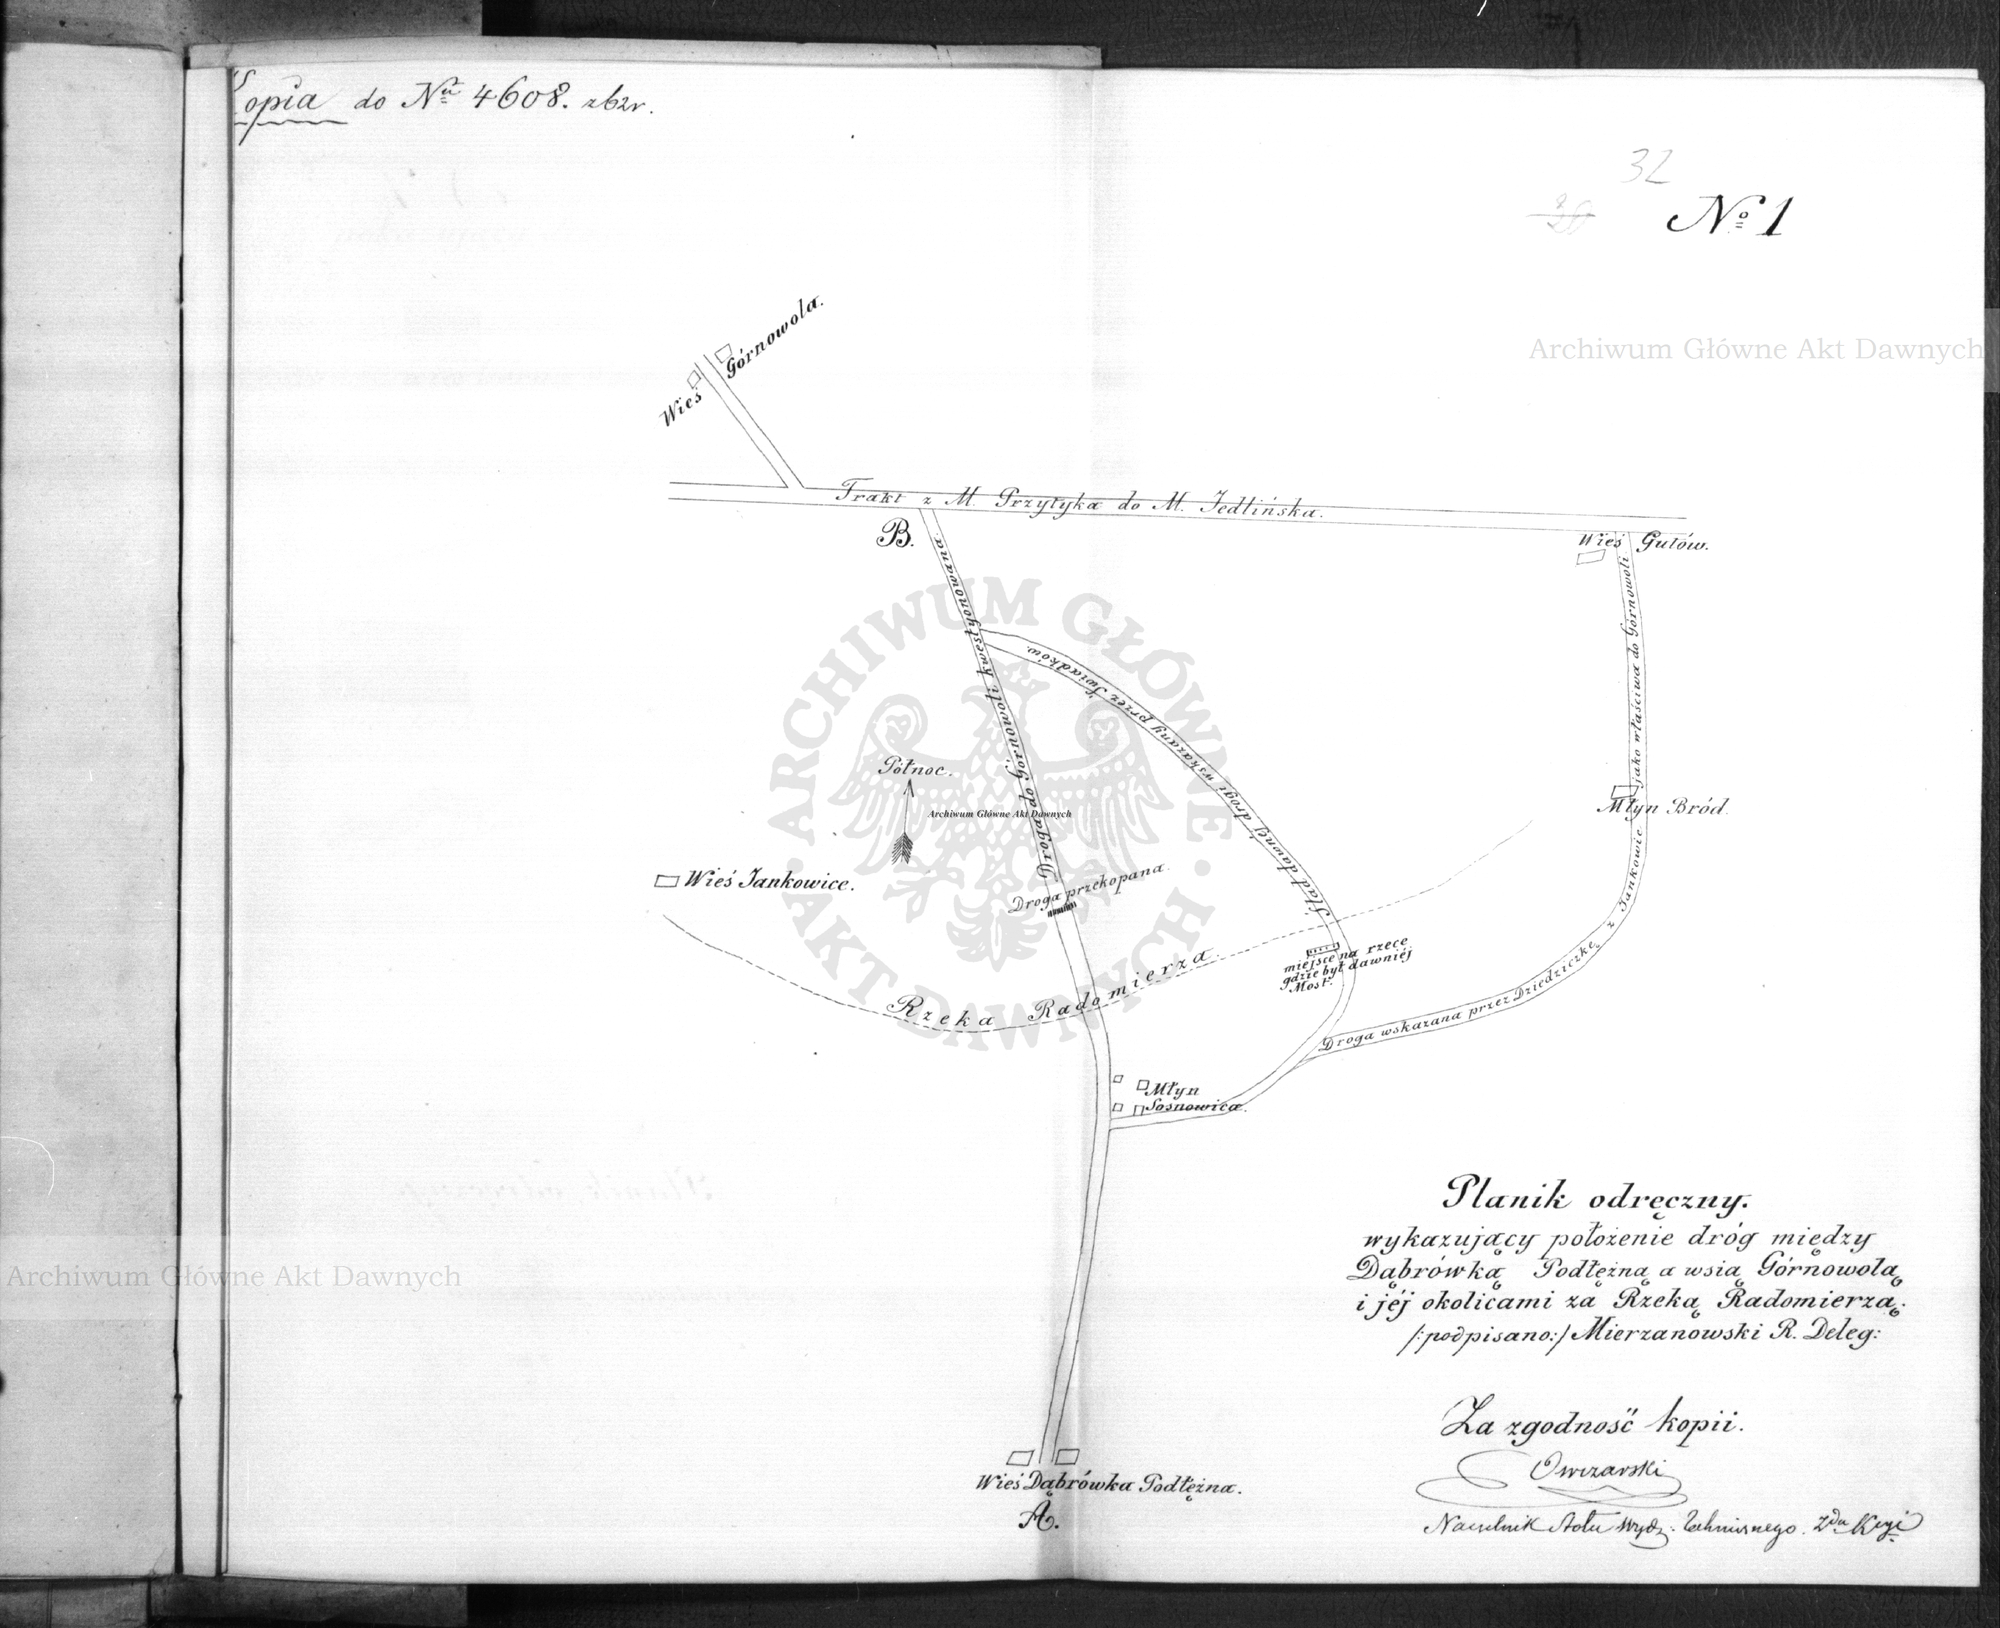 Kopia do Nrū 4608. z62r.
32
No 1
Archiwum Główne Akt Dawnych
Wieś Górnowola.
Trakt z M. Przytyka do M. Jedlińska.
B.
Wieś Gułów.
Droga do Górnowoli kwestyonowana.
Ślad dawnéj drogi wskazany przez Świadków.
Droga wskazana przez Dziedziczkę z Jankowic jako właściwa do Górnowoli
Północ.
Archiwum Główne Akt Dawnych
ARCHIWUM GŁÓWNE
AKT DAWNYCH
Młyn Bród.
Wieś Jankowice.
Droga przekopana.
Rzeka Radomierza.
miejsce na rzece
gdzie był dawniéj
Most.
Młyn
Sosnowica.
Planik odręczny.
wykazujący położenie dróg między
Dąbrówką Podłężną a wsią Górnowolą
i jéj okolicami za Rzeką Radomierzą.
/:podpisano:/ Mierzanowski R. Deleg:
Archiwum Główne Akt Dawnych
Za zgodność kopii.
Owczarski
Naczelnik Stołu Wydz: Technicznego.
Wieś Dąbrówka Podłężna.
A.